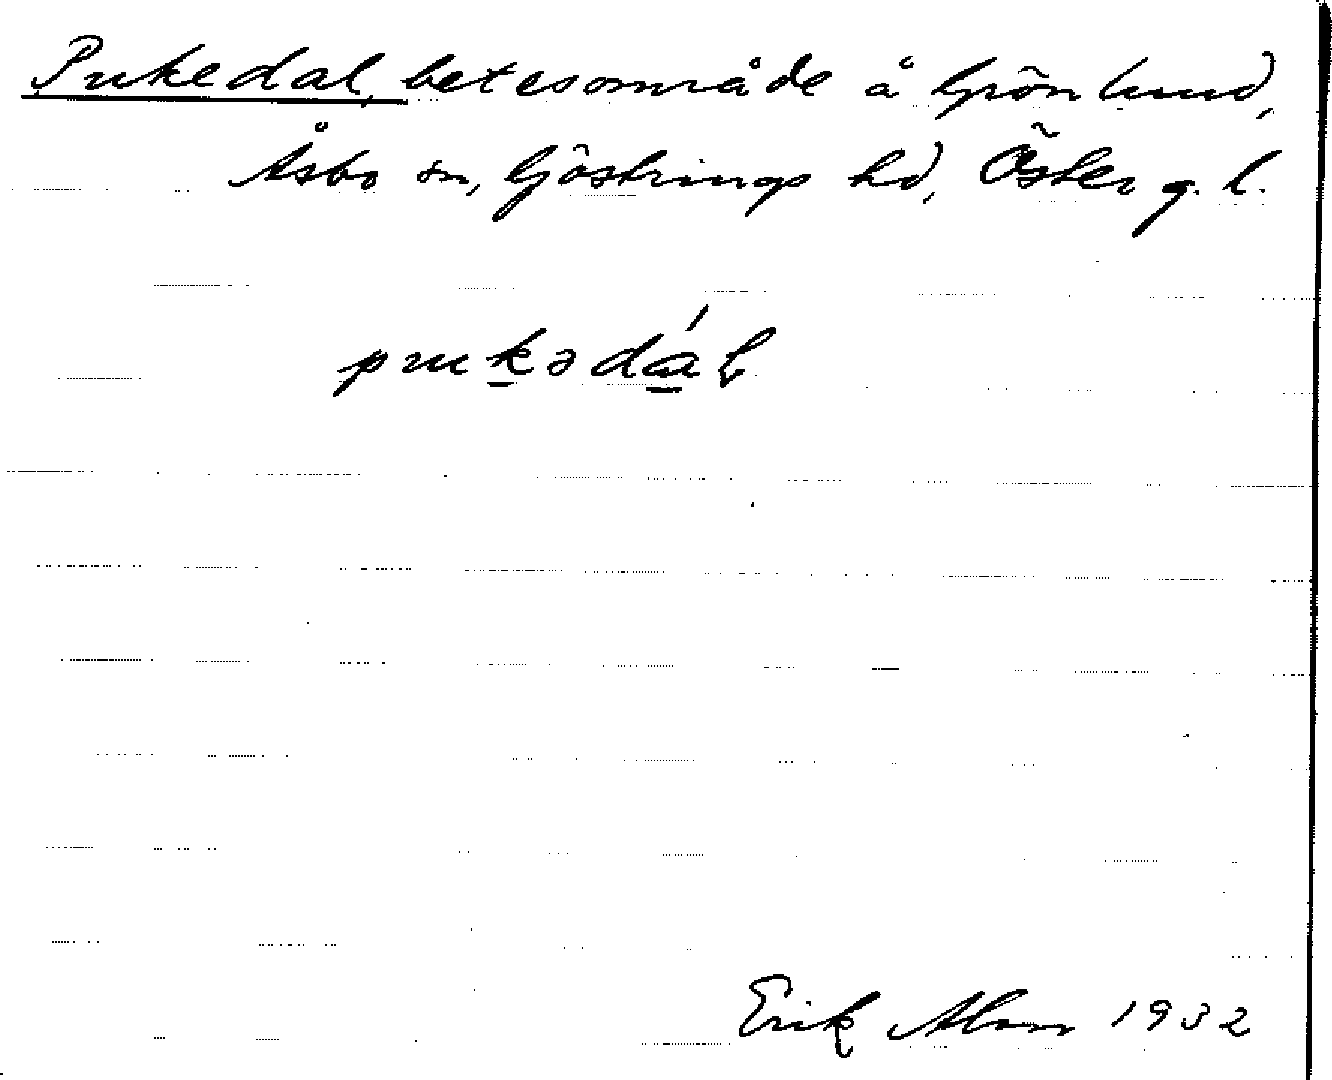 Pukedal, betesområde å Grönlund,
Åsbo sn, Göstrings hd, Österg. l.
pukədál
Erik Abrn 1932